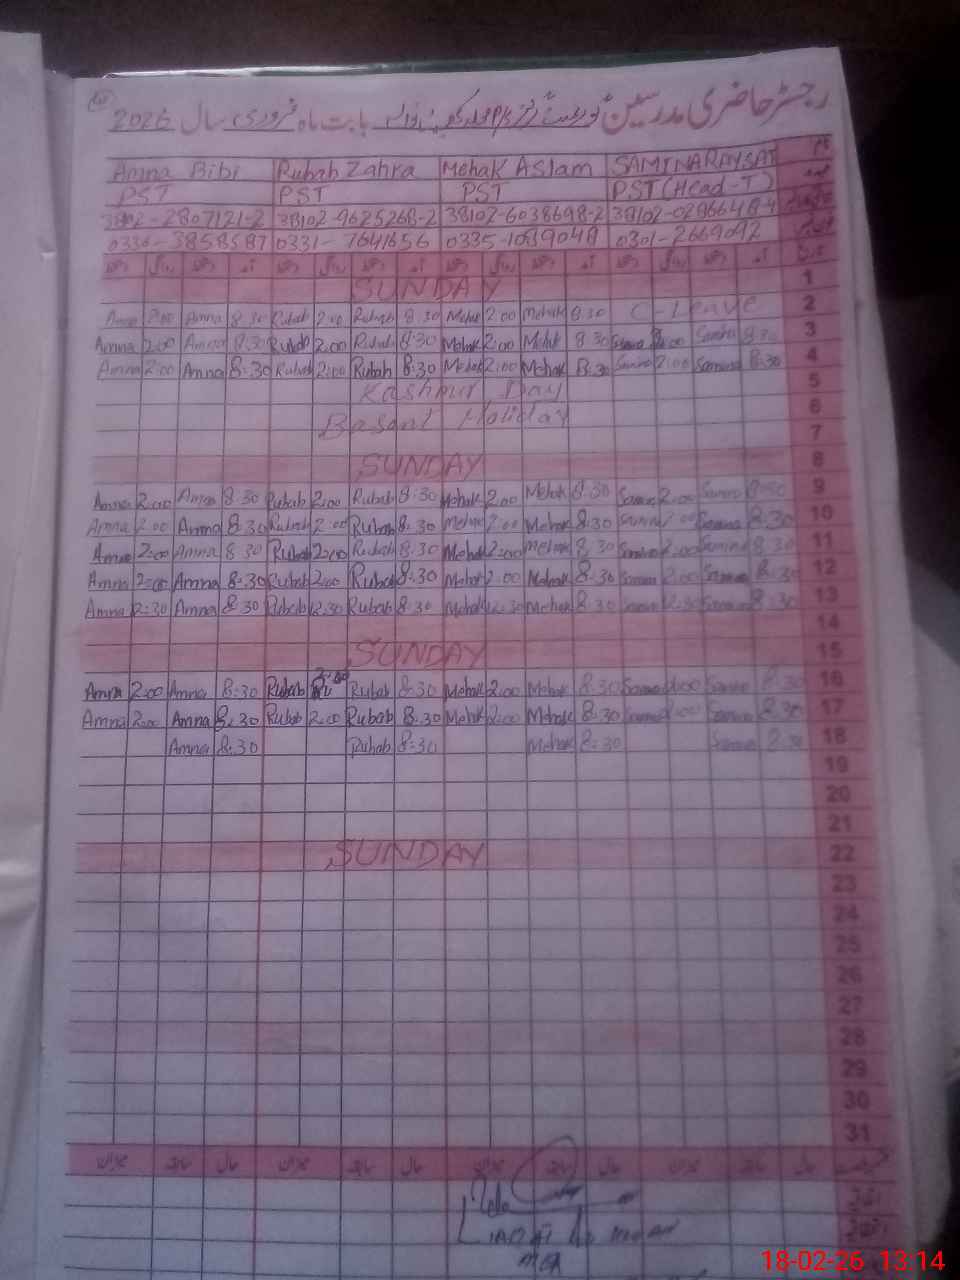 رجسٹر حاضری مدرسین بابت ماہ فروری سال 2026
Amna Bibi Rubab Zahra Mehak Aslam SAMINA RIYSAT نام
PST PST PST PST (Head-T) عہدہ
38102-9625268-2 38102-6038698-2
0336-3858587 0331-7641656 0301-2669092
SUNDAY 1
Amna 2:00 Amna 8:30 Rubab 2:00 Rubab 8:30 Mehak 2:00 Mehak 8:30 C-Leave 2
Amna 2:00 Amna 8:30 Rubab 2:00 Rubab 8:30 Mehak 2:00 Mehak 8:30 Samina 2:00 Samina 8:30 3
Amna 2:00 Amna 8:30 Rubab 2:00 Rubab 8:30 Mehak 2:00 Mehak 8:30 Samina 2:00 Samina 8:30 4
Kashmir Day 5
Basant Holiday 6
7
SUNDAY 8
Amna 2:00 Amna 8:30 Rubab 2:00 Rubab 8:30 Mehak 2:00 Mehak 8:30 Samina 2:00 Samina 8:30 9
Amna 2:00 Amna 8:30 Rubab 2:00 Rubab 8:30 Mehak 2:00 Mehak 8:30 Samina 2:00 Samina 8:30 10
Amna 2:00 Amna 8:30 Rubab 2:00 Rubab 8:30 Mehak 2:00 Mehak 8:30 Samina 2:00 Samina 8:30 11
Amna 2:00 Amna 8:30 Rubab 2:00 Rubab 8:30 Mehak 2:00 Mehak 8:30 Samina 2:00 Samina 8:30 12
Amna 12:30 Amna 8:30 Rubab 12:30 Rubab 8:30 Mehak 12:30 Mehak 8:30 Samina 12:30 Samina 8:30 13
14
SUNDAY 15
Amna 2:00 Amna 8:30 Rubab 2:00 Rubab 8:30 Mehak 2:00 Mehak 8:30 Samina 2:00 Samina 8:30 16
Amna 2:00 Amna 8:30 Rubab 2:00 Rubab 8:30 Mehak 2:00 Mehak 8:30 Samina 2:00 Samina 8:30 17
Amna 8:30 Rubab 8:30 Mehak 8:30 Samina 8:30 18
19
20
21
SUNDAY 22
23
24
25
26
27
28
29
30
31
میزان سابقہ حال میزان سابقہ حال میزان سابقہ حال میزان سابقہ حال
MEA
18-02-26 13:14